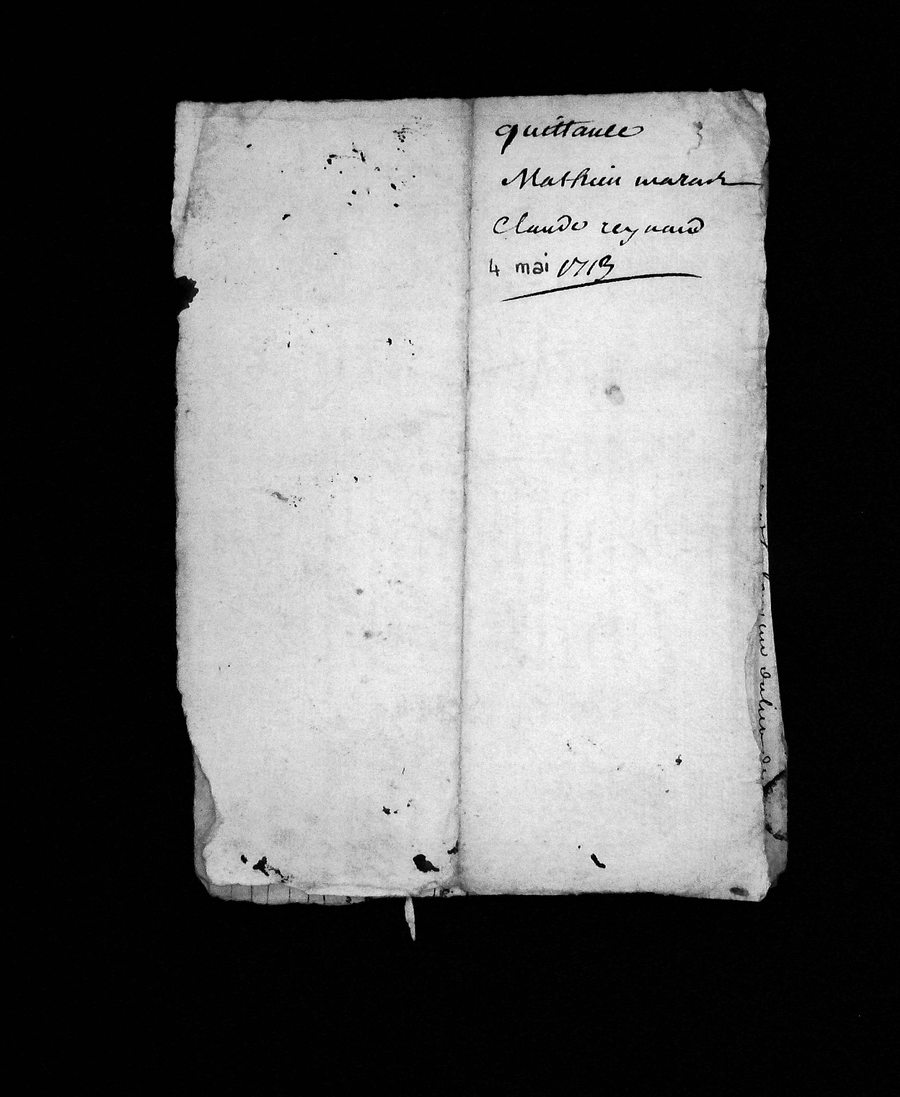 quittance
Mathieu marack
Claude reynaud
4 mai 1713